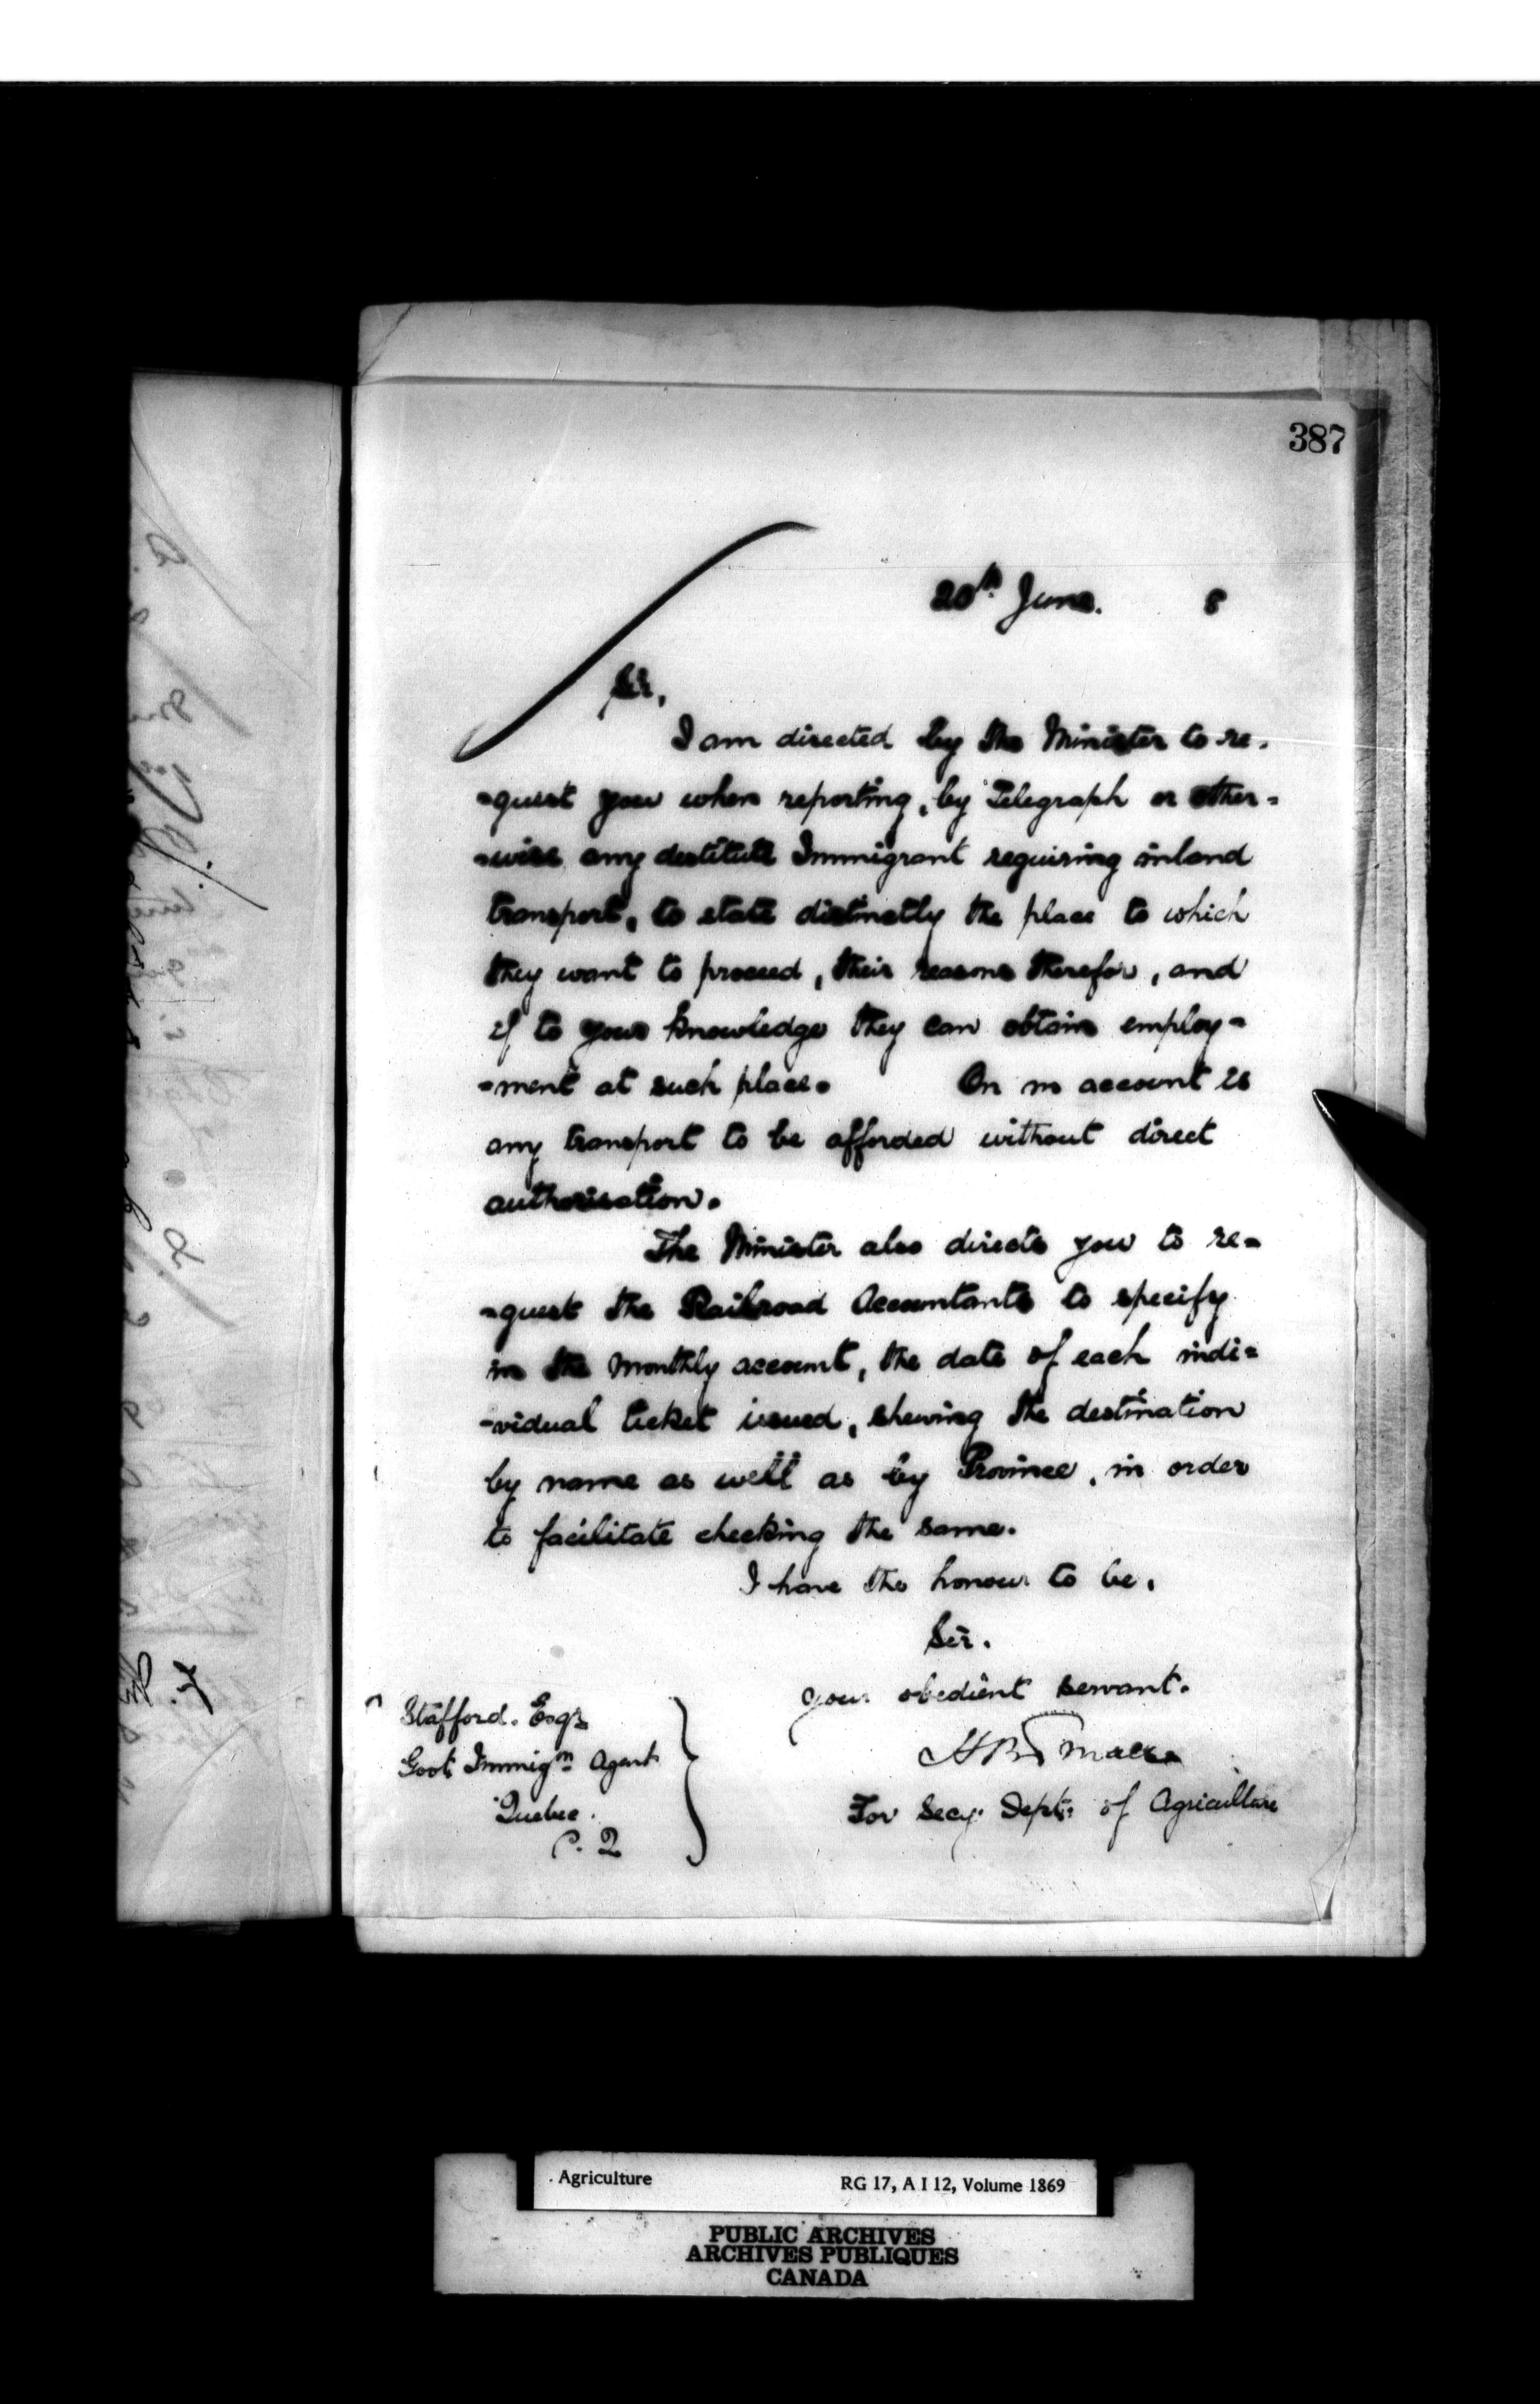 387
20th June. 8
Sir,
I am directed by the Minister to re-
-quest you when reporting, by Telegraph or other-
-wise any destitute Immigrant requiring inland
transport, to state distinctly the place to which
they want to proceed, their reasons therefor, and
if to your knowledge they can obtain employ-
-ment at such place. On no account is
any transport to be afforded without direct
authorisation.
The Minister also directs you to re-
-quest the Railroad Accountants to specify
in the monthly account, the date of each indi-
-vidual ticket issued, shewing the destination
by name as well as by Province, in order
to facilitate checking the same.
I have the honour to be,
Sir.
your obedient servant.
H B Small
For Secy. Dept. of Agriculture
Stafford. Esqr
Govt Immign Agent
Quebec.
P. Q
Agriculture RG 17, A I 12, Volume 1869
PUBLIC ARCHIVES
ARCHIVES PUBLIQUES
CANADA